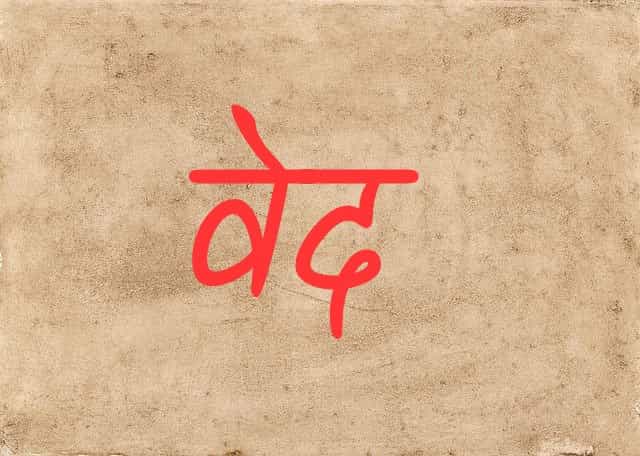 वेद